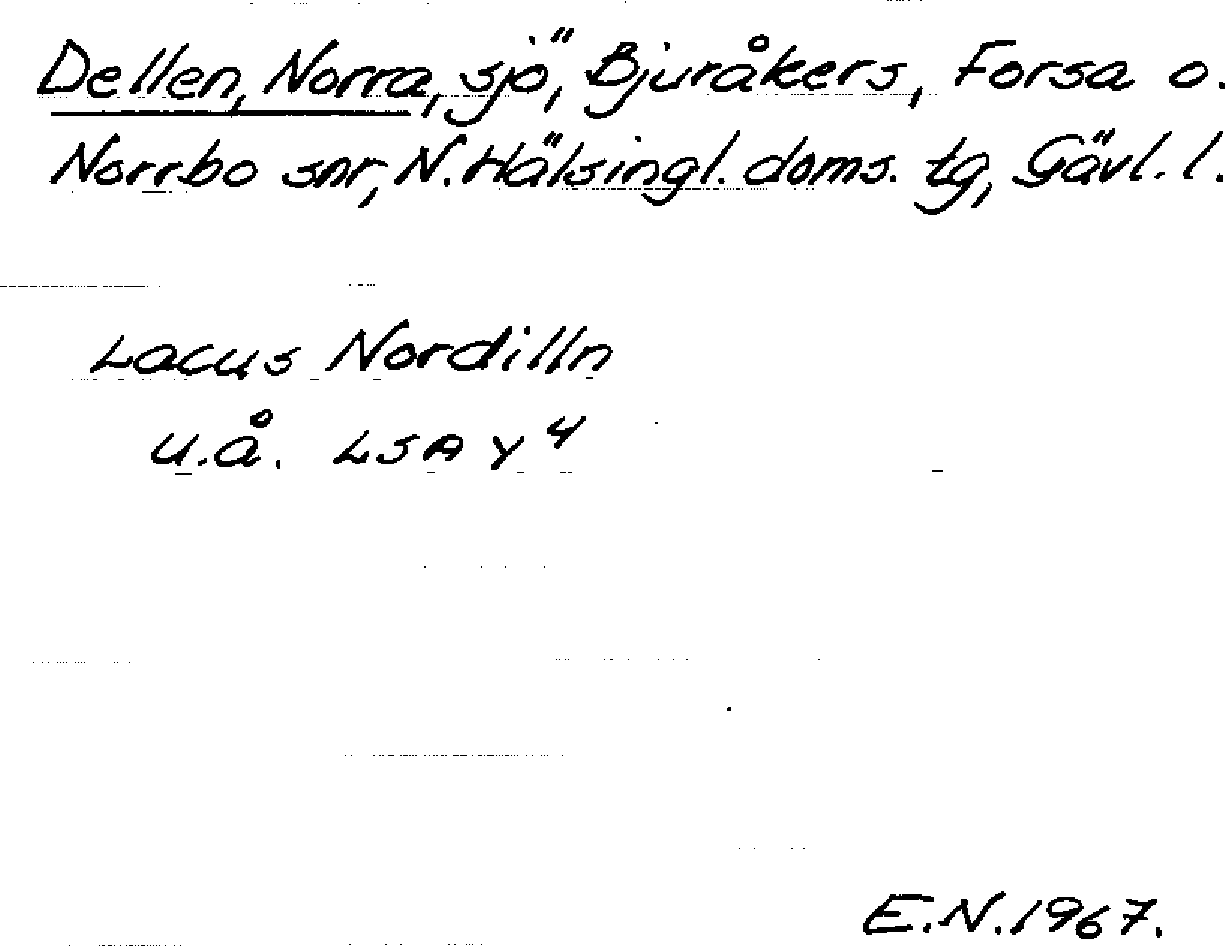 Dellen, Norra, sjö, Bjuråkers, Forsa o.
Norrbo snr, N. Hälsingl. doms. tg, Gävl. l.
Lacus Nordilln
u.å. LSA Y 4
E.N. 1967.